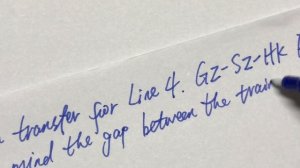 transfer for Line 4. Gz-Sz-Hk
mind the gap between the train